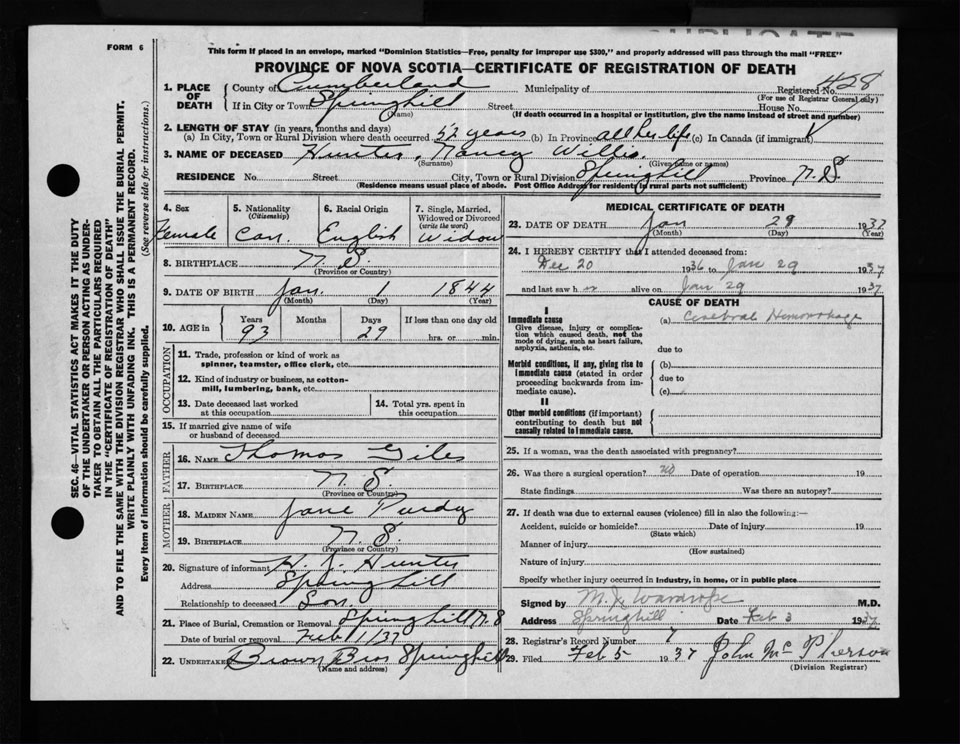 FORM 6
This form if placed in an envelope, marked "Dominion Statistics—Free, penalty for improper use $300," and properly addressed will pass through the mail "FREE"
PROVINCE OF NOVA SCOTIA—CERTIFICATE OF REGISTRATION OF DEATH
428
1. PLACE OF DEATH
County of Cumberland Municipality of Registered No.
(For use of Registrar General only)
If in City or Town Springhill Street House No.
(Name) (If death occurred in a hospital or institution, give the name instead of street and number)
2. LENGTH OF STAY (in years, months and days)
(a) In City, Town or Rural Division where death occurred 52 years (b) In Province all her life (c) In Canada (if immigrant)
3. NAME OF DECEASED Hunter, Nancy Willis
(Surname) (Given name or names)
RESIDENCE No. Street City, Town or Rural Division Springhill Province N.S.
(Residence means usual place of abode. Post Office Address for residents in rural parts not sufficient)
4. Sex
Female
5. Nationality
(Citizenship)
Can.
6. Racial Origin
English
7. Single, Married, Widowed or Divorced
(write the word)
Widow
8. BIRTHPLACE N.S.
(Province or Country)
9. DATE OF BIRTH Jan. 1 1844
(Month) (Day) (Year)
10. AGE in
Years Months Days If less than one day old
93 29 hrs. or min.
OCCUPATION
11. Trade, profession or kind of work as spinner, teamster, office clerk, etc.
12. Kind of industry or business, as cotton-mill, lumbering, bank, etc.
13. Date deceased last worked at this occupation
14. Total yrs. spent in this occupation
15. If married give name of wife or husband of deceased
FATHER
16. NAME Thomas Giles
17. BIRTHPLACE N.S.
(Province or Country)
MOTHER
18. MAIDEN NAME Jane Purdy
19. BIRTHPLACE N.S.
(Province or Country)
20. Signature of informant H. J. Hunter
Address Springhill
Relationship to deceased Son
21. Place of Burial, Cremation or Removal Springhill N.S
Date of burial or removal Feb 1/37
22. UNDERTAKER Brown Bros Springhill
(Name and address)
MEDICAL CERTIFICATE OF DEATH
23. DATE OF DEATH Jan 29 1937
(Month) (Day) (Year)
24. I HEREBY CERTIFY that I attended deceased from:
Dec 20 1936 to Jan 29 1937
and last saw her alive on Jan 29 1937
CAUSE OF DEATH
I
Immediate cause
Give disease, injury or complication which caused death, not the mode of dying, such as heart failure, asphyxia, asthenia, etc.
(a) Cerebral Hemorrhage
due to
Morbid conditions, if any, giving rise to immediate cause (stated in order proceeding backwards from immediate cause).
(b)
due to
(c)
II
Other morbid conditions (if important) contributing to death but not causally related to immediate cause.
25. If a woman, was the death associated with pregnancy?
26. Was there a surgical operation? no Date of operation 19
State findings Was there an autopsy?
27. If death was due to external causes (violence) fill in also the following:—
Accident, suicide or homicide? Date of injury 19
(State which)
Manner of injury
(How sustained)
Nature of injury
Specify whether injury occurred in industry, in home, or in public place
Signed by Wardrope M.D.
Address Springhill Date Feb 3 1937
28. Registrar's Record Number 7
29. Filed Feb 5 1937 John McPherson
(Division Registrar)
SEC. 46—VITAL STATISTICS ACT MAKES IT THE DUTY
OF THE UNDERTAKER OR PERSON ACTING AS UNDER-
TAKER TO OBTAIN ALL THE PARTICULARS REQUIRED
IN THE "CERTIFICATE OF REGISTRATION OF DEATH"
AND TO FILE THE SAME WITH THE DIVISION REGISTRAR WHO SHALL ISSUE THE BURIAL PERMIT.
WRITE PLAINLY WITH UNFADING INK. THIS IS A PERMANENT RECORD.
Every item of information should be carefully supplied. (See reverse side for instructions.)